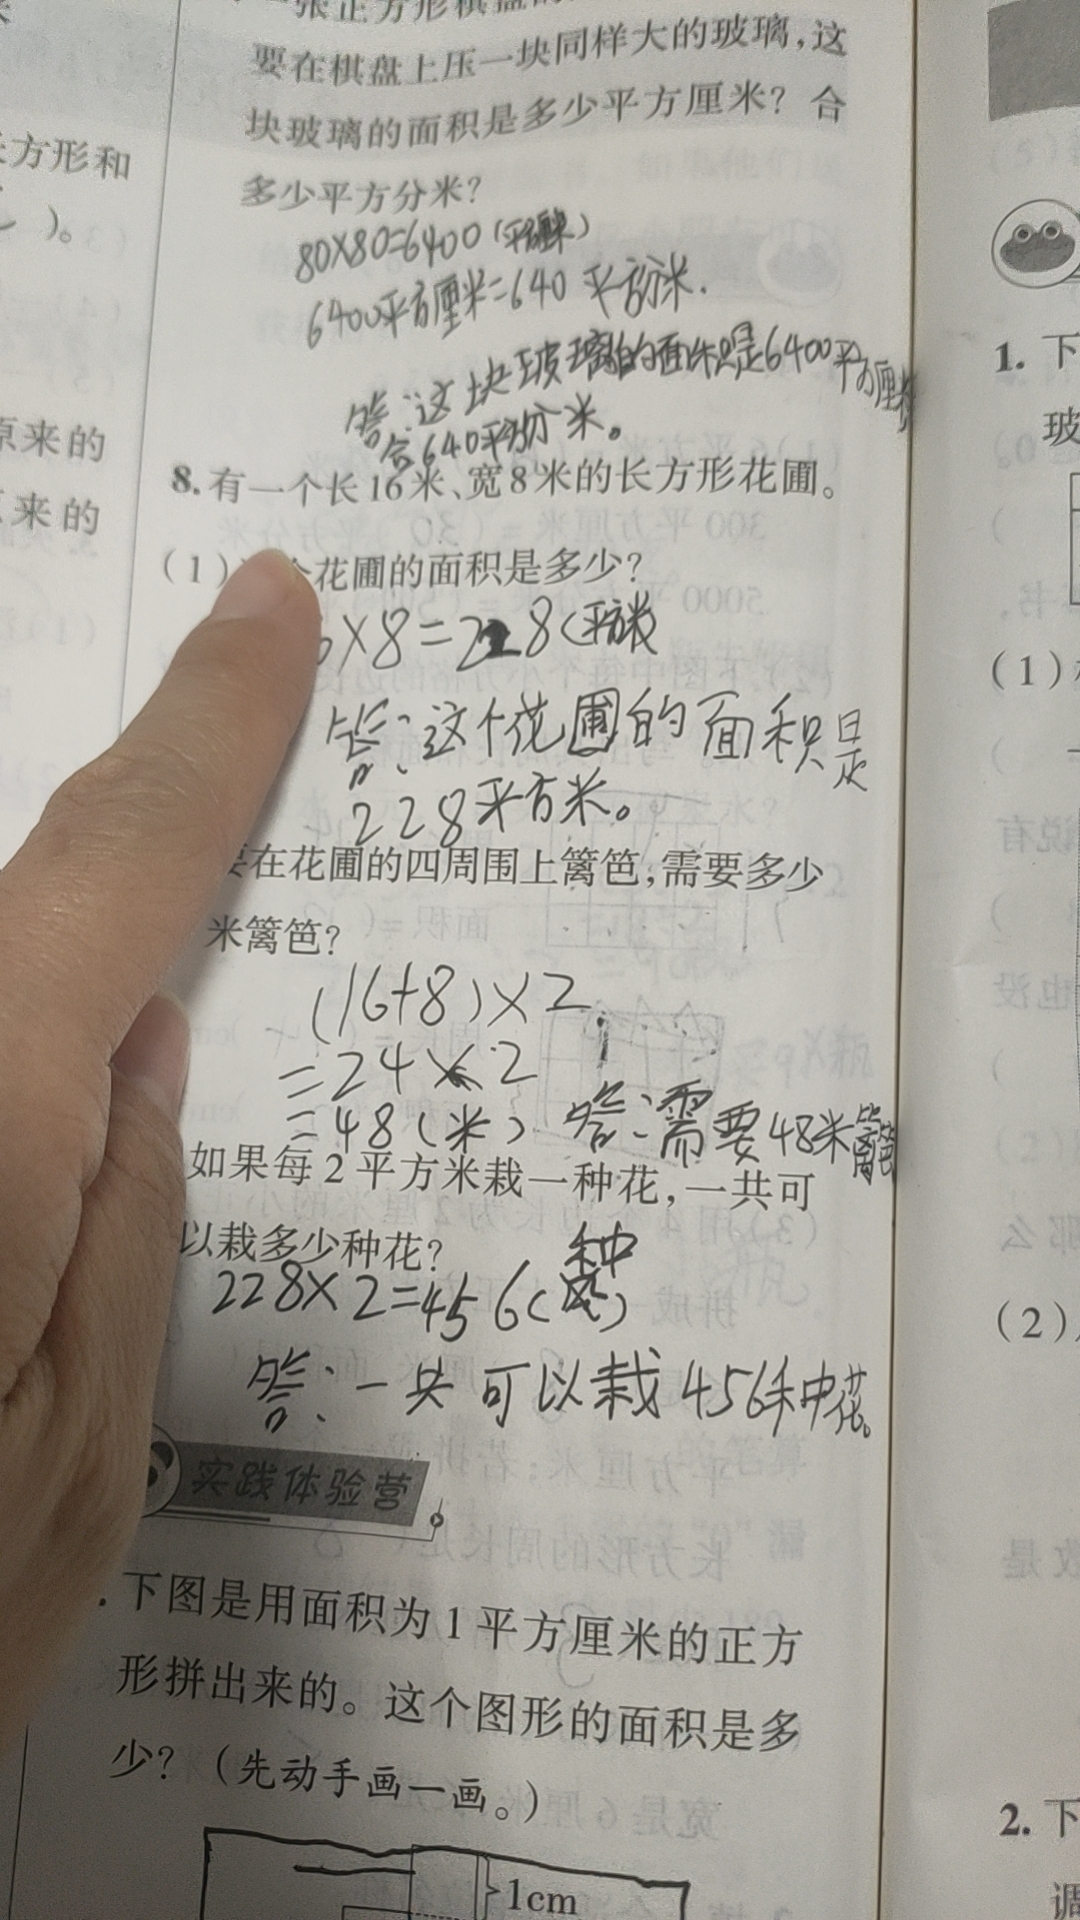 一张正方形棋盘的
要在棋盘上压一块同样大的玻璃,这
块玻璃的面积是多少平方厘米? 合
多少平方分米?
80×80=6400(平方厘米)
6400平方厘米=640平方分米.
答:这块玻璃的面积是6400平方厘米
合640平方分米。
8.有一个长16米、宽8米的长方形花圃。
(1) 个花圃的面积是多少?
×8=228(平方米)
答:这个花圃的面积是
228平方米。
要在花圃的四周围上篱笆,需要多少
米篱笆?
(16+8)×2
=24×2
=48(米) 答:需要48米篱笆
如果每2平方米栽一种花,一共可
以栽多少种花?
228×2=456(种)
答:一共可以栽456种花。
实践体验营
.下图是用面积为1平方厘米的正方
形拼出来的。这个图形的面积是多
少?(先动手画一画。)
1cm
方形和
)。
原来的
来的
1.下
玻
书,
(1)
(2)
2.下
调